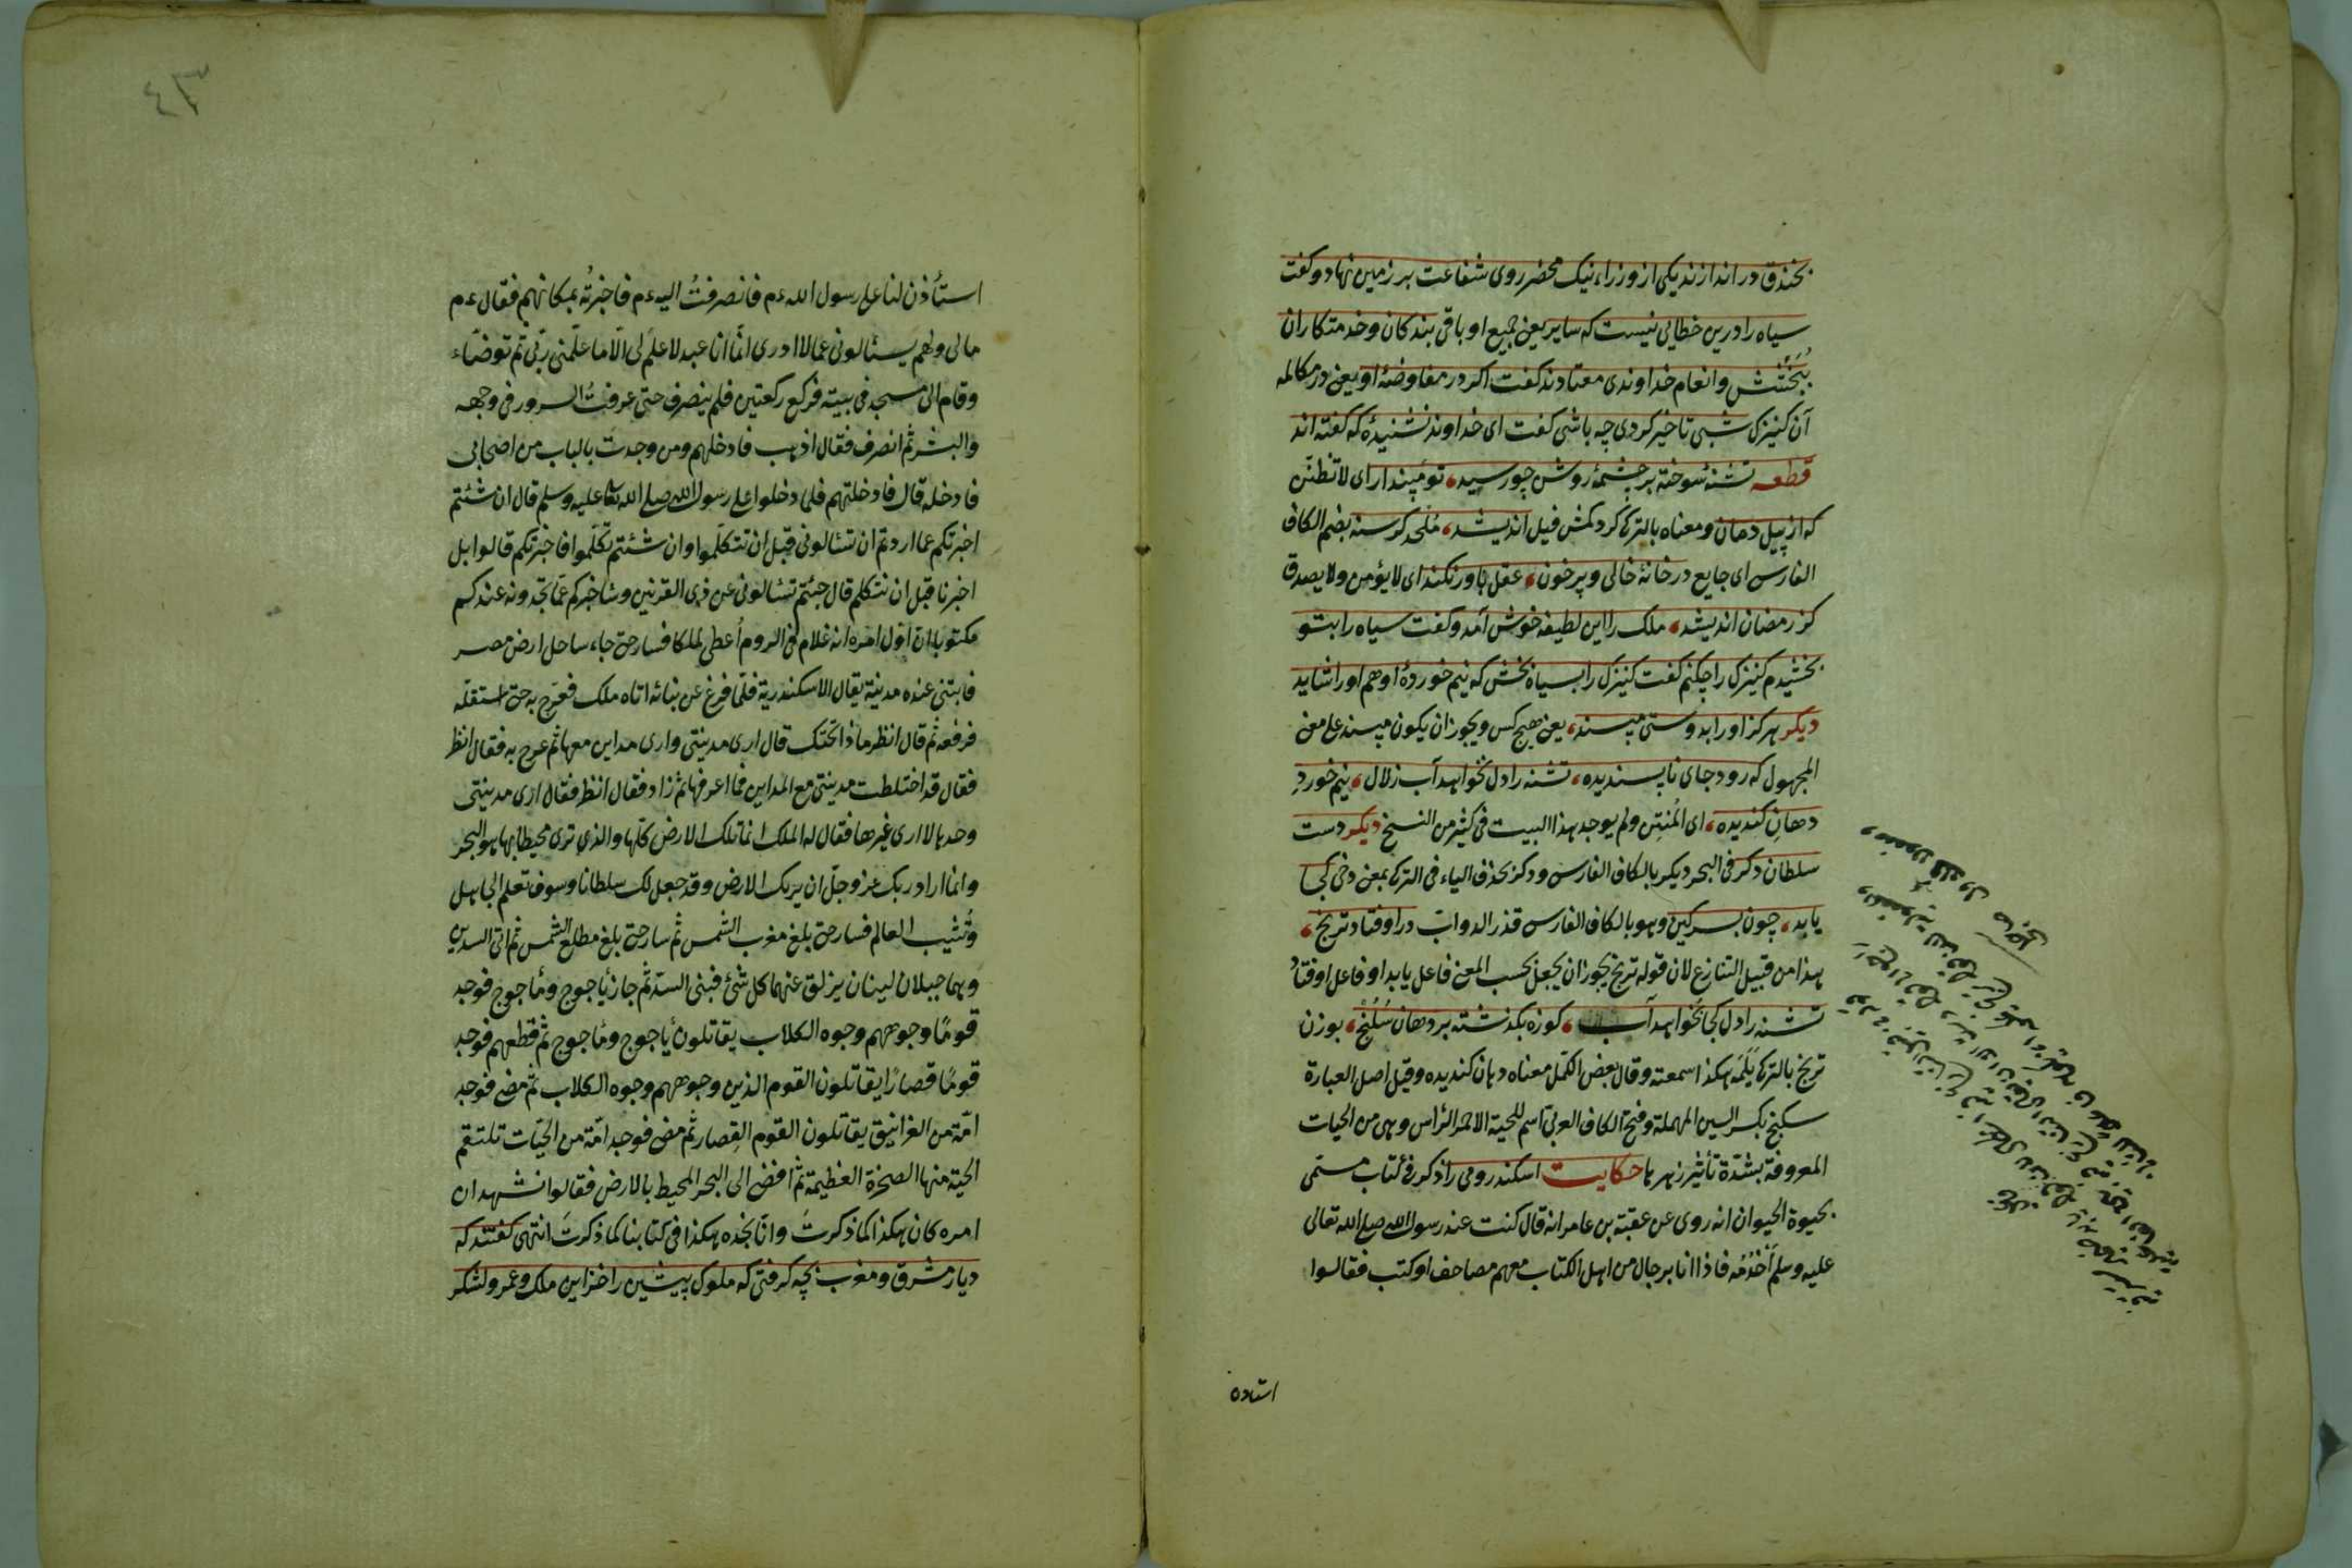 بخندق در اندازند یکی از وزراء نیک محضر روی شفاعت بر زمین نهاد و کفت
سیاه را درین خطایی نیست که سایر یعنی جمیع او باقی بندکان و خدمتکاران
بخشش و انعام خداوندی معتادند کفت اکر در مفاوضهٔ او یعنی در مکالمه
آن کنیزک شبی تاخیر کردی چه باشی کفت ای خداوند نشنیدهٔ که کفته اند
قطعه تشنهٔ سوخته بر چشمهٔ روشن چو رسید، تو مپندار ای لا تظنّن
که از پیل دمان و معناه بالترکی کردکمش فیل اندیشد، ملحد کرسنه بضم الکاف
الفارسی ای جایع در خانهٔ خالی و پر خون، عقل باور نکند ای لا یؤمن ولا یصدق
کز رمضان اندیشد، ملک را این لطیفه خوش آمد و کفت سیاه را بتو
بخشیدم کنیزک را چکنم کفت کنیزک را بسیاه بخش که نیم خوردهٔ او هم او را شاید
دیکر هرکز او را بدوستی مپسند، یعنی هیچ کس و یجوز ان یکون مپسند علی معنی
المجهول که رود جای ناپسندیده، تشنه را دل نخواهد آب زلال، نیم خورد
دهان کندیده، ای المُنتِن ولم یوجد هذا البیت فی کثیر من النسخ دیکر دست
سلطان دکر فی البحر دیکر بالکاف الفارسی ودکر بحذف الیاء فی الترکی بمعنی دخی کجا
یابد، چون بسرکین وهو بالکاف الفارسی قذر الدواب در اوفتاد ترنج،
هذا من قبیل التنازع لان قوله ترنج یجوز ان یجعل بحسب المعنی فاعل یابد او فاعل اوفتاد
تشنه را دل کجا بخواهد آب، کوزه بکذشته بر دهان سُکُنج، بوزن
ترنج بالترکی هکذا سمعته وقال بعض الکمل معناه دهان کندیده وقیل اصل العبارة
سکنج بکسر السین المهملة وفتح الکاف العربی اسم للحیة الاحمر الرأس وهی من الحیات
المعروفة بشدّة تأثیر زهرها حکایت اسکندر رومی را ذکر فی کتاب مسمّی
بحیوة الحیوان انه روی عن عقبة بن عامر انه قال کنت عند رسول الله صلی الله تعالی
علیه وسلم أخدُمُه فاذا انا برجال من اهل الکتاب معهم مصاحف او کتب فقالوا
استاذه
٤٣
استأذن لنا علی رسول الله ءم فانصرفتُ الیه ءم فاخبرتُه بمکانهم فقال ءم
مالی ولهم یسئالونی عمّا لا ادری انّما انا عبد لا علم لی الّا ما علّمنی ربّی ثم توضّاء
وقام الی مسجد فی بیته فرکع رکعتین فلم ینصرف حتی عرفتُ السرور فی وجهه
والبشر ثم انصرف فقال اذهب فادخلهم ومن وجدت بالباب من اصحابی
فادخله قال فادخلتهم فلما دخلوا علی رسول الله صلی الله تعا علیه وسلم قال ان شئتم
اخبرتکم عما اردتم ان تسئالونی قبل ان تتکلّموا وان شئتم تکلّموا فاخبرتکم قالوا بل
اخبرنا قبل ان نتکلم قال جئتم تسئالونی عن ذی القرنین وساخبرکم عمّا تجدونه عندکم
مکتوبا ان اوّل امره انه غلام فی الروم أعطی ملکا فسار حتی جاء ساحل ارض مصر
فابتنی عنده مدینة یقال الاسکندریة فلمّا فرغ عن بنائه اتاه ملک فعرّج به حتی استقلّه
فرفعه ثم قال انظر ماذا تحتک قال اری مدینتی واری مداین معها ثم عرج به فقال انظر
فقال قد اختلطت مدینتی مع المداین فما اعرفها ثم زاد فقال انظر فقال اری مدینتی
وحدها لا اری غیرها فقال له الملک انما تلک الارض کلّها والذی تری محیطا بها هو البحر
وانما اراد ربک عز وجلّ ان یریک الارض وقد جعل لک سلطانا وسوف تعلم الجاهل
وتثیب العالم فسار حتی بلغ مغرب الشمس ثم سار حتی بلغ مطلع الشمس ثم اتی السدین
وهما جبلان لینان یزلق عنهما کل شئ فبنی السدّ ثم جاز یأجوج ومأجوج فوجد
قومًا وجوههم وجوه الکلاب یقاتلون یأجوج ومأجوج ثم قطعهم فوجد
قومًا قصارًا یقاتلون القوم الذین وجوههم وجوه الکلاب ثم مضی فوجد
امّة من الغرانیق یقاتلون القوم القِصار ثم مضی فوجد امّة من الحیّات تلتقم
الحیّة منها الصخرة العظیمة ثم افضی الی البحر المحیط بالارض فقالوا نشهد ان
امره کان هکذا کما ذکرتَ وانّا نجده هکذا فی کتابنا کما ذکرتَ انتهی کفتند که
دیار مشرق و مغرب بچه کرفتی که ملوک پیشین را خزاین ملک و عمر و لشکر